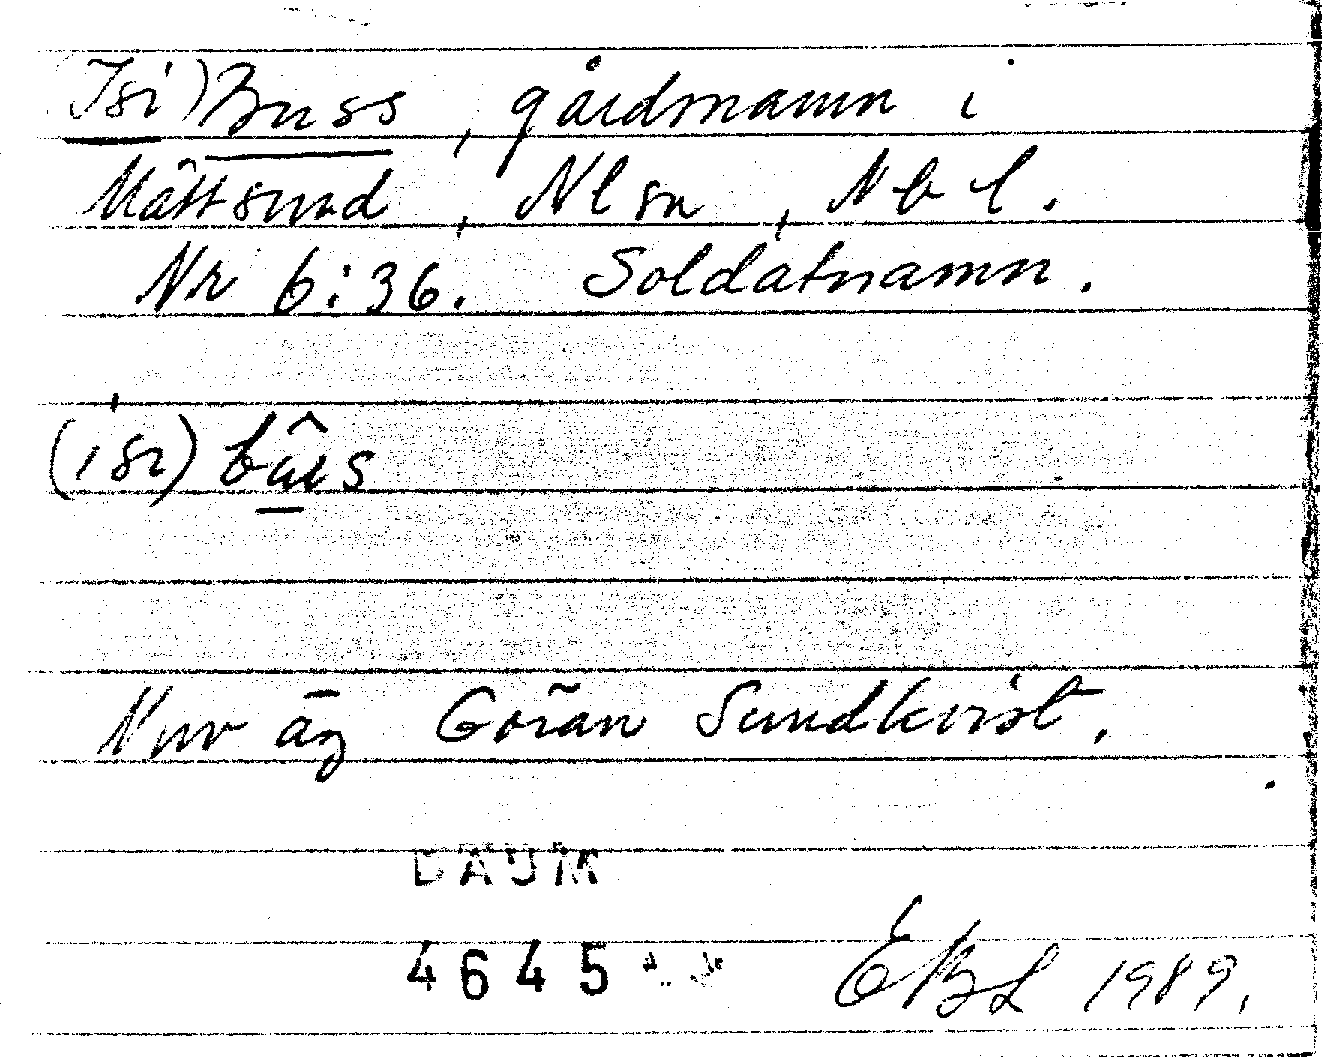 (Isi) Buss, gårdnamn i
Måttsund, Nlsn, Nbl.
Nr 6:36. Soldatnamn.
(isi) bûs
Nuv äg Göran Sundkvist.
DAUM
4645
EBL 1989.